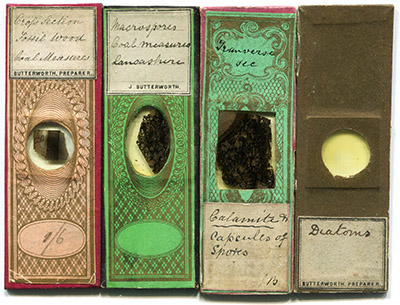 Cross Section
Fossil wood
Coal Measures
BUTTERWORTH, PREPARER.
1/6
Macrospores
Coal measures
Lancashire
J. BUTTERWORTH.
Transverse
sec
Calamite
Capsules of
Spores
1/6
Diatoms
BUTTERWORTH, PREPARER